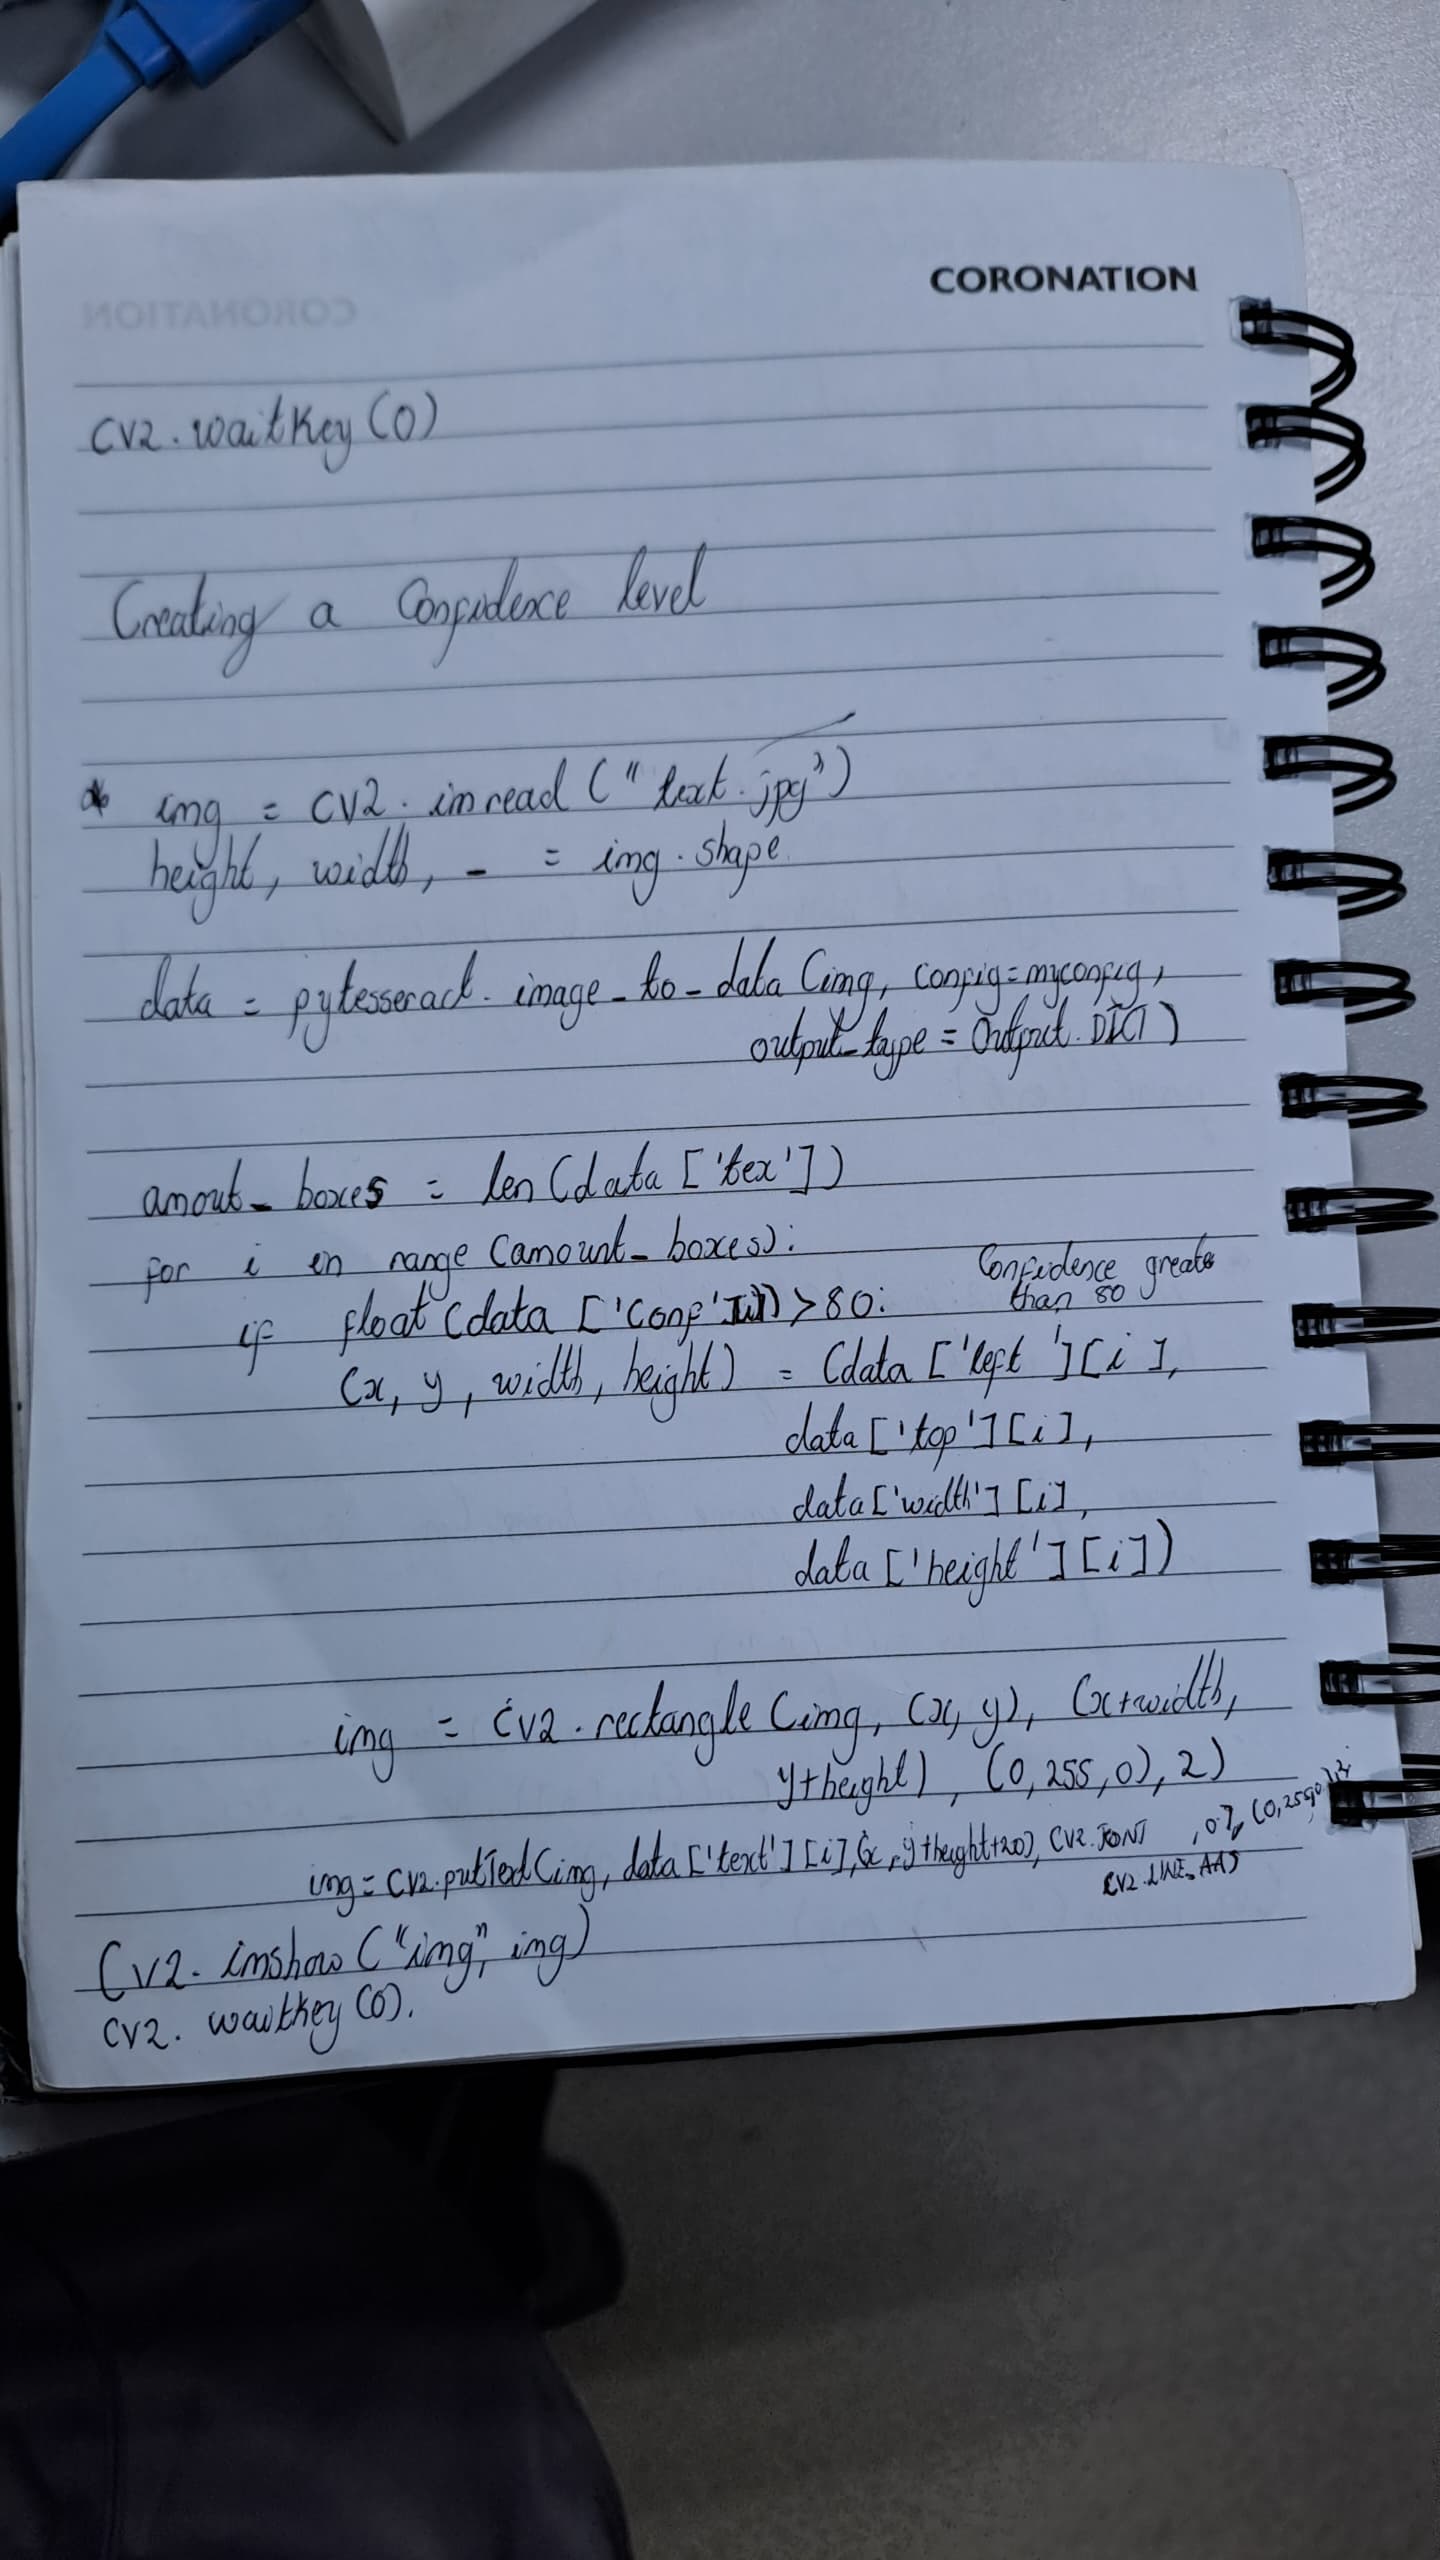 CORONATION
cv2.waitKey(0)
Creating a Confidence level
* img = cv2.imread("text.jpg")
height, width, _ = img.shape
data = pytesseract.image_to_data(img, config=myconfig,
output_type = Output.DICT)
amout_boxes = len(data['tex'])
for i in range(amount_boxes):
Confidence greater
than 80
if float(data['conf'][i]) > 80:
(x, y, width, height) = (data['left'][i],
data['top'][i],
data['width'][i],
data['height'][i])
img = cv2.rectangle(img, (x, y), (x+width,
y+height), (0,255,0), 2)
img = cv2.putText(img, data['text'][i], (x, y+height+20), cv2.FONT , 0.7, (0,255,0), 2,
cv2.LINE_AA)
cv2.imshow("img", img)
cv2.waitkey(0).